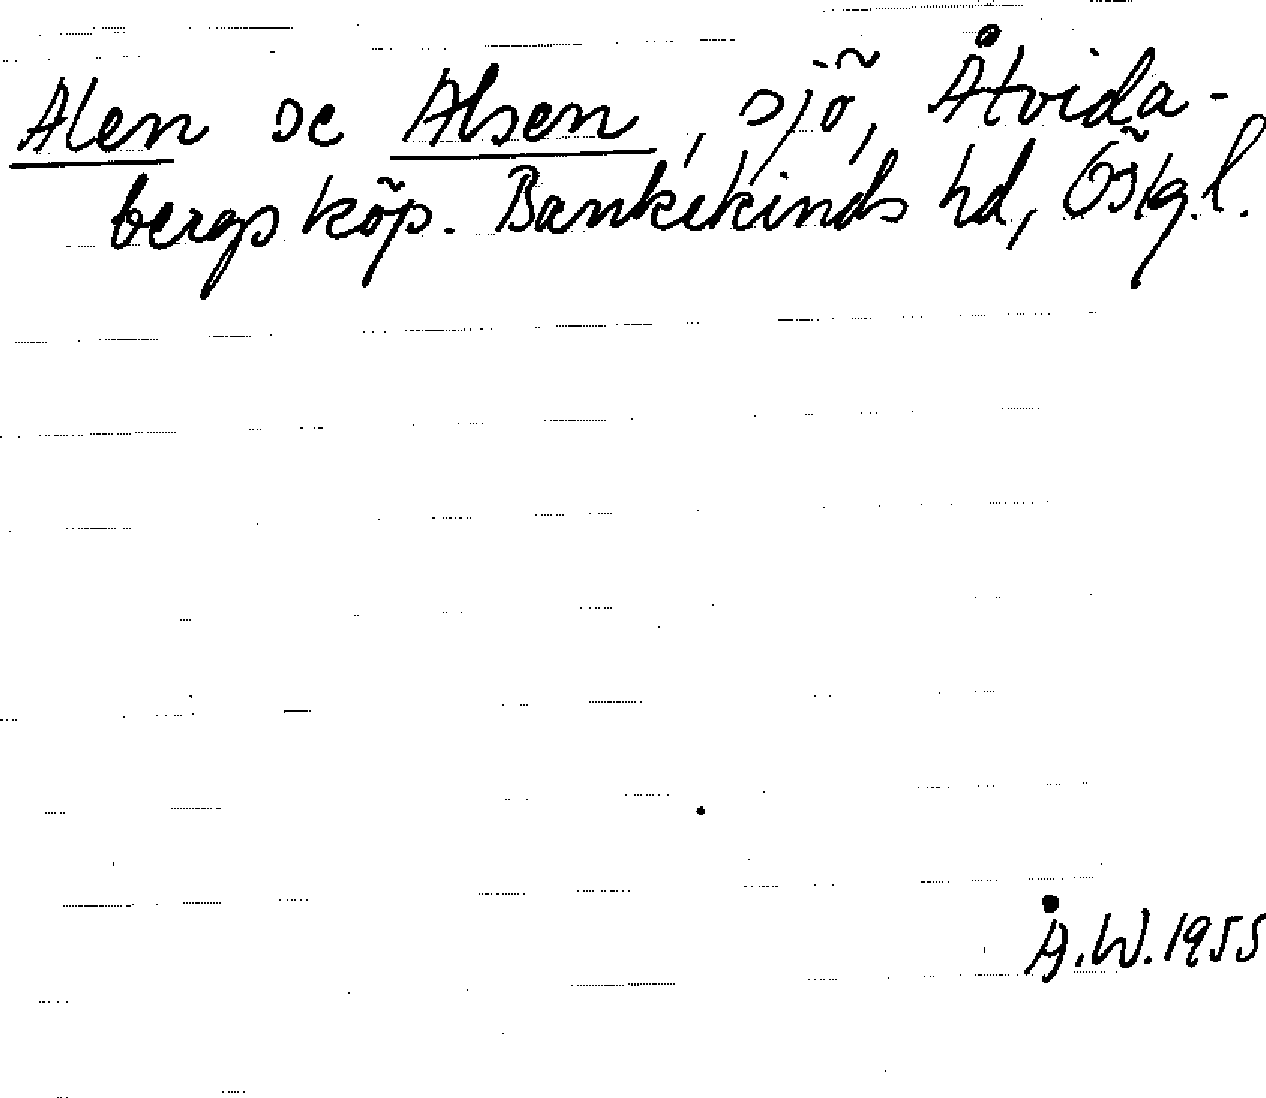 Alen se Alsen, sjö, Åtvida-
bergs köp. Bankekinds hd, Östg.l.
Å.W. 1955